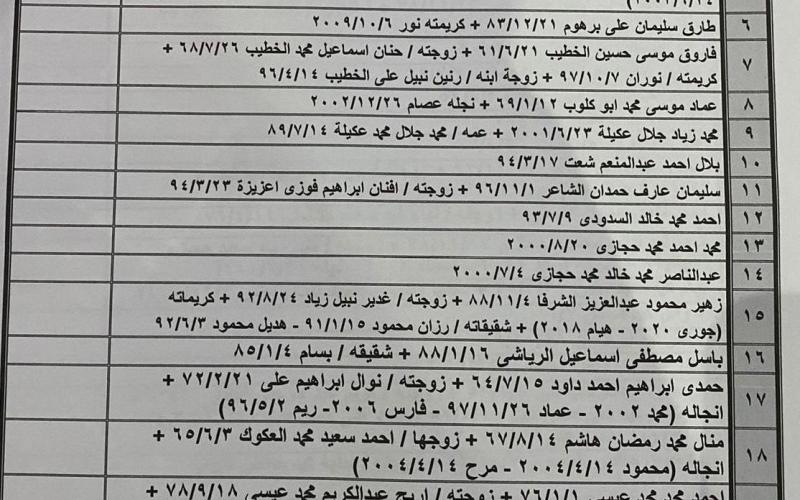 ٦ طارق سليمان على برهوم ٨٣/١٢/٢١ + كريمته نور ٢٠٠٩/١٠/٦
٧ فاروق موسى حسين الخطيب ٦١/٦/٢١ + زوجته / حنان اسماعيل محمد الخطيب ٦٨/٧/٢٦ +
كريمته / نوران ٩٧/١٠/٧ + زوجة ابنه / رنين نبيل على الخطيب ٩٦/٤/١٤
٨ عماد موسى محمد ابو كلوب ٦٩/١/١٢ + نجله عصام ٢٠٠٢/١٢/٢٦
٩ محمد زياد جلال عكيلة ٢٠٠١/٦/٢٣ + عمه / محمد جلال محمد عكيلة ٨٩/٧/١٤
١٠ بلال احمد عبدالمنعم شعت ٩٤/٣/١٧
١١ سليمان عارف حمدان الشاعر ٩٦/١١/١ + زوجته / افنان ابراهيم فوزى اعزيزة ٩٤/٣/٢٣
١٢ احمد محمد خالد السدودى ٩٣/٧/٩
١٣ محمد احمد محمد حجازى ٢٠٠٠/٨/٢٠
١٤ عبدالناصر محمد خالد محمد حجازى ٢٠٠٠/٧/٤
١٥ زهير محمود عبدالعزيز الشرفا ٨٨/١١/٤ + زوجته / غدير نبيل زياد ٩٢/٨/٢٤ + كريماته
(جورى ٢٠٢٠ - هيام ٢٠١٨) + شقيقاته / رزان محمود ٩١/١/١٥ - هديل محمود ٩٢/٦/٣
١٦ باسل مصطفى اسماعيل الرياشى ٨٨/١/١٦ + شقيقه / بسام ٨٥/١/٤
١٧ حمدى ابراهيم احمد داود ٦٤/٧/١٥ + زوجته / نوال ابراهيم على ٧٢/٢/٢١ +
انجاله (محمد ٢٠٠٢ - عماد ٩٧/١١/٢٦ - فارس ٢٠٠٦- ريم ٩٦/٥/٢)
١٨ منال محمد رمضان هاشم ٦٧/٨/١٤ + زوجها / احمد سعيد محمد العكوك ٦٥/٦/٣ +
انجاله (محمود ٢٠٠٤/٤/١٤ - مرح ٢٠٠٤/٤/١٤)
احمد محمد محمد عيسى ٧٦/١/١ + زوجته / اريج عبدالكريم محمد عيسى ٧٨/٩/١٨ +